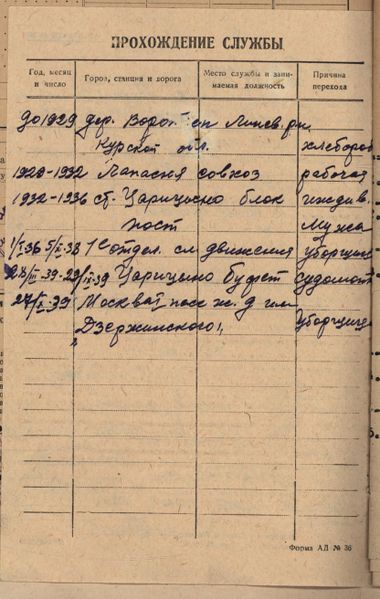 ПРОХОЖДЕНИЕ СЛУЖБЫ
Год, месяц и число
Город, станция и дорога
Место службы и занимаемая должность
Причина перехода
до 1929 дер. Ворот Линев. рн.
Курской обл. хлебороб
1929-1932 совхоз рабочая
1932-1936 ст. Царицыно блок иждив.
пост мужа
1/I 36 5/II-38 1е отдел. сл движения уборщиц
28/III-39-29/IX-39 Царицыно буфет судомой
27/X-39 Москва пасс ж. д им уборщица
Дзержинского
Форма АД № 36